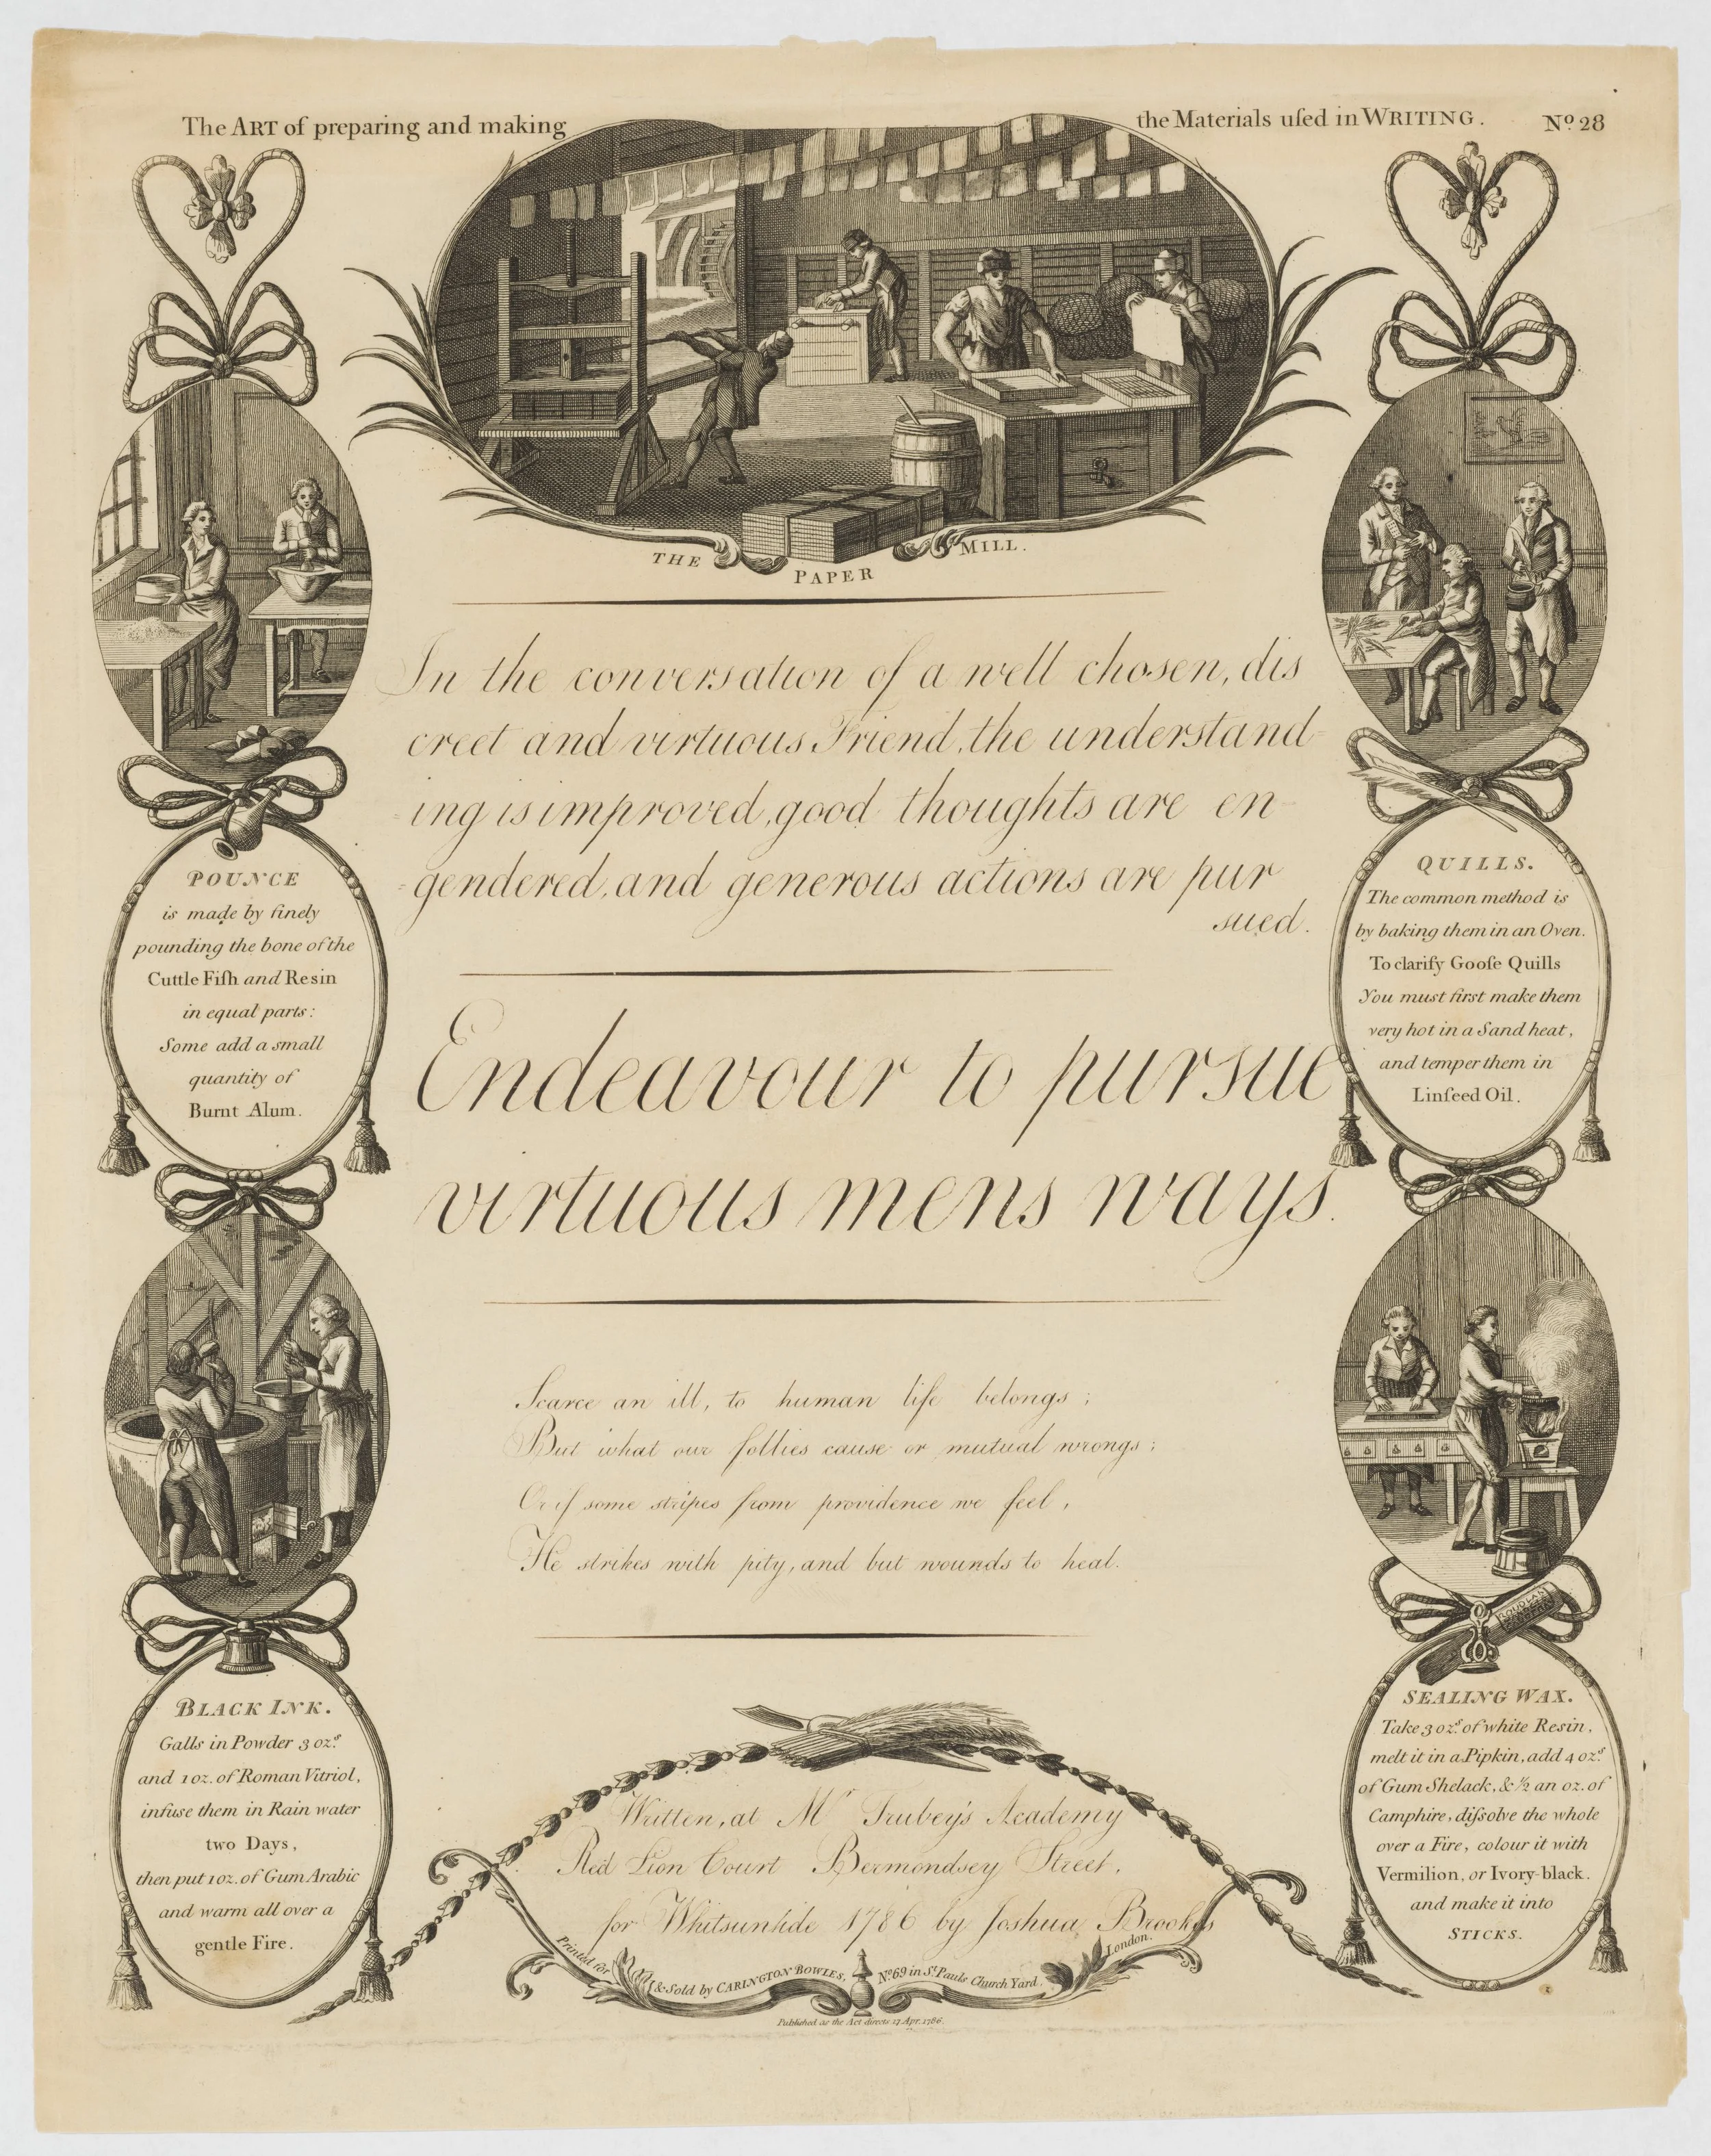 The ART of preparing and making the Materials uſed in WRITING. Nº. 28
THE PAPER MILL.
In the conversation of a well chosen, dis
creet and virtuous Friend, the understand-
-ing is improved, good thoughts are en-
=gendered, and generous actions are pur
sued.
Endeavour to pursue
virtuous mens ways.
Scarce an ill, to human life belongs ;
But what our follies cause or mutual wrongs ;
Or if some stripes from providence we feel ,
He strikes with pity, and but wounds to heal.
POUNCE
is made by finely
pounding the bone of the
Cuttle Fiſh and Resin
in equal parts :
Some add a small
quantity of
Burnt Alum.
BLACK INK.
Galls in Powder 3 ozˢ.
and 1 oz. of Roman Vitriol,
infuse them in Rain water
two Days,
then put 1 oz. of Gum Arabic
and warm all over a
gentle Fire.
QUILLS.
The common method is
by baking them in an Oven.
To clarify Gooſe Quills
You must first make them
very hot in a Sand heat,
and temper them in
Linſeed Oil.
SEALING WAX.
Take 3 ozˢ. of white Resin,
melt it in a Pipkin, add 4 ozˢ.
of Gum Shelack, & ½ an oz. of
Camphire, diſsolve the whole
over a Fire, colour it with
Vermilion, or Ivory-black.
and make it into
STICKS.
Written, at Mʳ Trubey's Academy
Red Lion Court Bermondsey Street,
for Whitsuntide 1786 by Joshua Brookes
Printed for & Sold by CARINGTON BOWLES, Nº. 69 in Sᵗ. Pauls Church Yard, London.
Published as the Act directs 17 Apr. 1786.